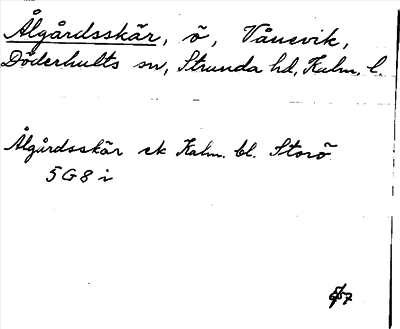 Ålgårdsskär, ö, Vånevik,
Döderhults sn, Stranda hd, Kalm. l.
Ålgårdsskär ek Kalm. bl. Storö
5G8i